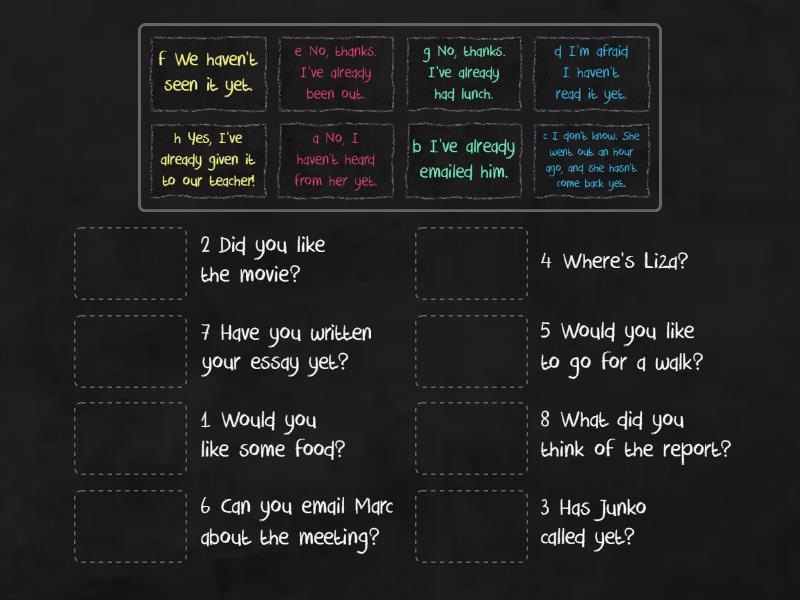 f We haven't
seen it yet.
e No, thanks.
I've already
been out.
g No, thanks.
I've already
had lunch.
d I'm afraid
I haven't
read it yet.
h Yes, I've
already given it
to our teacher!
a No, I
haven't heard
from her yet.
b I've already
emailed him.
c I don't know. She
went out an hour
ago, and she hasn't
come back yet.
2 Did you like
the movie?
4 Where's Liza?
7 Have you written
your essay yet?
5 Would you like
to go for a walk?
1 Would you
like some food?
8 What did you
think of the report?
6 Can you email Marc
about the meeting?
3 Has Junko
called yet?